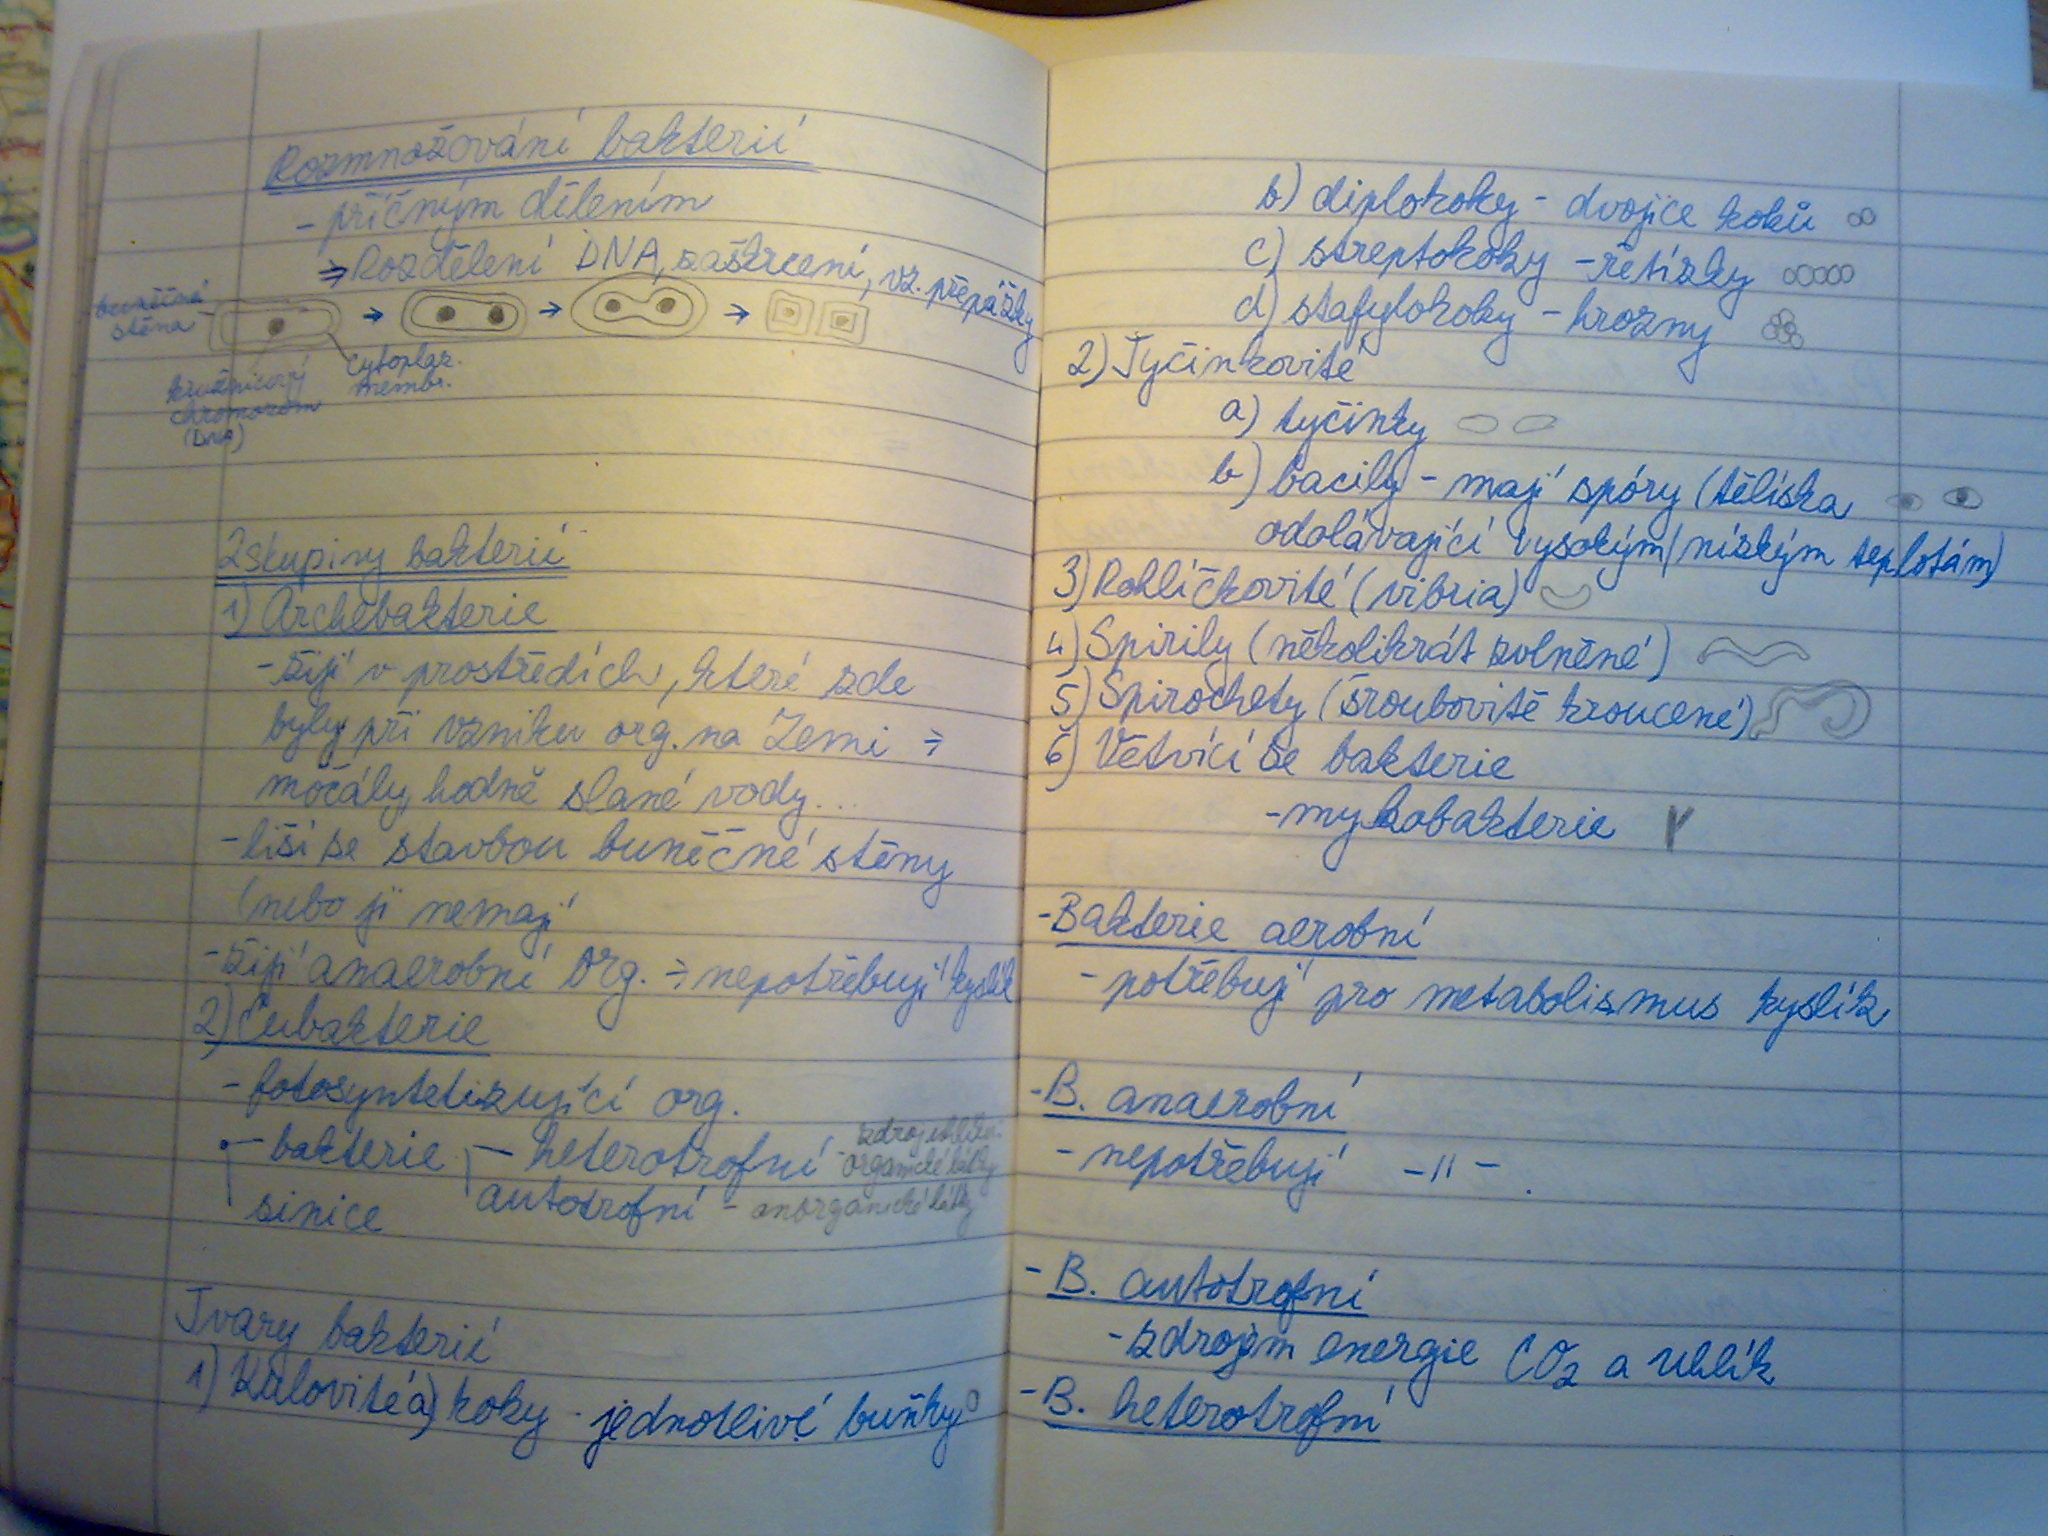 Rozmnožování bakterií
- příčným dělením
⇒ Rozdělení DNA, zaškrcení, vz. přepážky
buněčná
stěna
cytoplaz.
membr.
kružnicový
chromozom
(DNA)
2 skupiny bakterií
1) Archebakterie
- žijí v prostředích, které zde
byly při vzniku org. na Zemi ⇒
močály, hodně slané vody...
- liší se stavbou buněčné stěny
(nebo ji nemají
- žijí anaerobní org. ⇒ nepotřebují kyslík
2) Eubakterie
- fotosyntetizující org.
bakterie - heterotrofní - zdroj uhlíku
organické látky
sinice autotrofní - anorganické látky
Tvary bakterií
1) Kulovité a) koky - jednotlivé buňky
b) diplokoky - dvojice koků
c) streptokoky - řetízky
d) stafylokoky - hrozny
2) Tyčinkovité
a) tyčinky
b) bacily - mají spóry (tělíska
odolávající vysokým/nízkým teplotám)
3) Rohlíčkovité (vibria)
4) Spirily (několikrát zvlněné)
5) Spirochety (šroubovitě kroucené)
6) Větvící se bakterie
- mykobakterie
- Bakterie aerobní
- potřebují pro metabolismus kyslík
- B. anaerobní
- nepotřebují -"- .
- B. autotrofní
- zdrojem energie CO₂ a uhlík
- B. heterotrofní